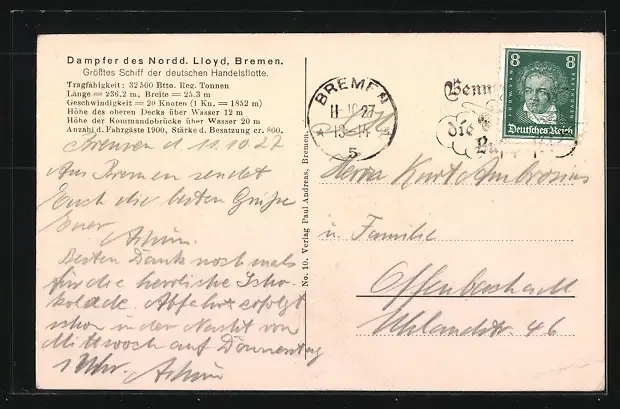 Dampfer des Nordd. Lloyd, Bremen.
Größtes Schiff der deutschen Handelsflotte.
Tragfähigkeit: 32500 Btto. Reg. Tonnen
Länge = 236,2 m, Breite = 25.3 m
Geschwindigkeit = 20 Knoten (1 Kn. = 1852 m)
Höhe des oberen Decks über Wasser 12 m
Höhe der Kommandobrücke über Wasser 20 m
Anzahl d. Fahrgäste 1900, Stärke d. Besatzung cr. 800.
Bremen d 11.10.27
Aus Bremen sendet
Euch die besten Grüße
Euer
Besten Dank nochmals
für die herrliche Scho-
kolade. Abfahrt erfolgt
schon in der Nacht von
Mittwoch auf Donnerstag
1 Uhr.
No. 10. Verlag Paul Andreas, Bremen.
BREMEN
11.10.27
13-14
5
die
8 8
Deutsches Reich
Herrn Kurt Ambrosius
u. Familie
Offenbach a M
Uhlandstr. 46